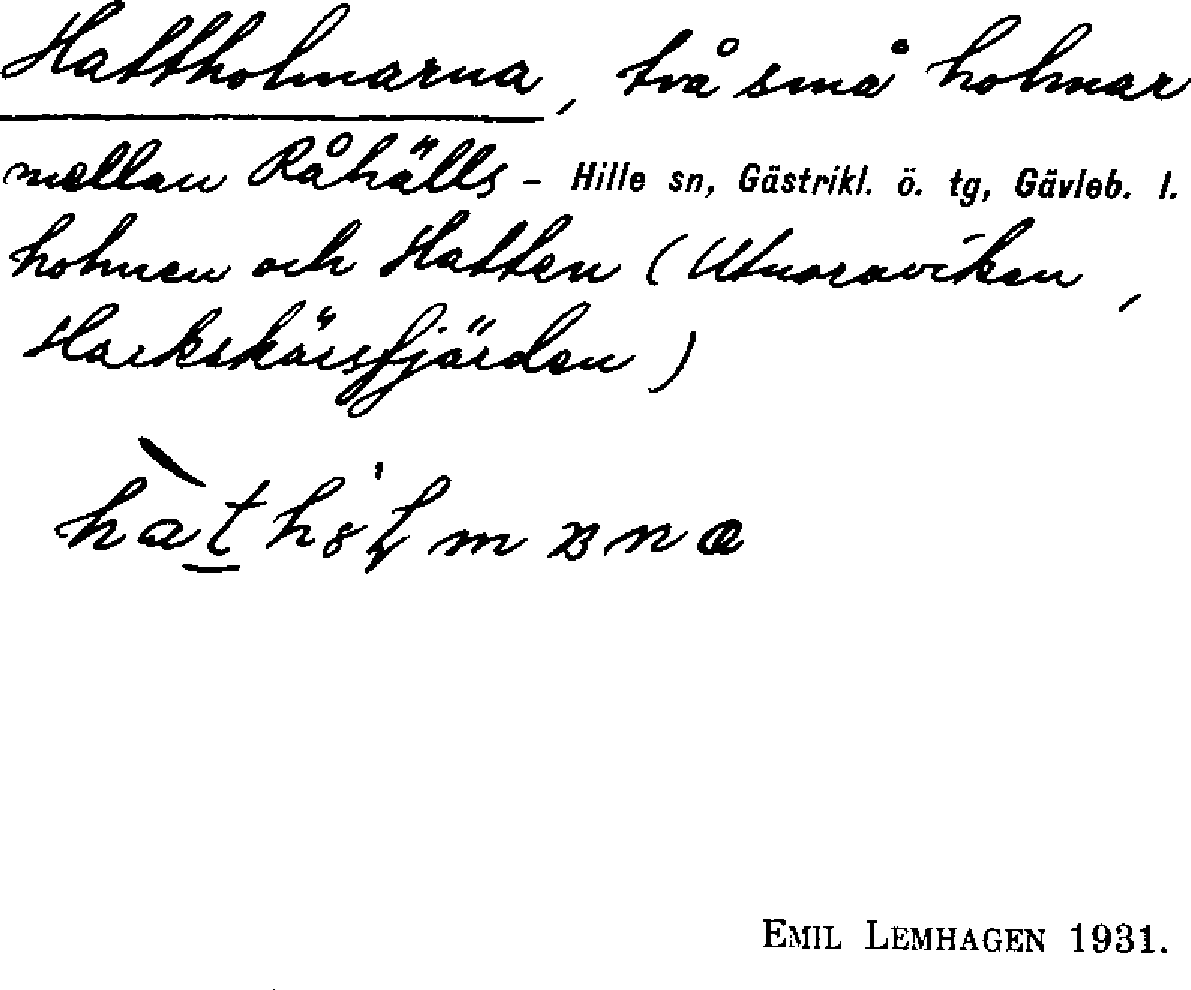 Hattholmarna, två små holmar
mellan Råhälls- Hille sn, Gästrikl. ö. tg, Gävleb. l.
holmen och Hatten (Utnoraviken,
Harkskärsfjärden)
EMIL LEMHAGEN 1931.